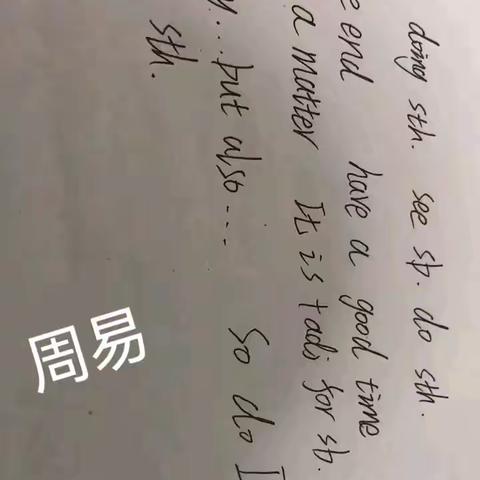 doing sth. see sb. do sth.
e end have a good time
a matter It is + adj for sb.
y...but also... So do I
sth.
周易